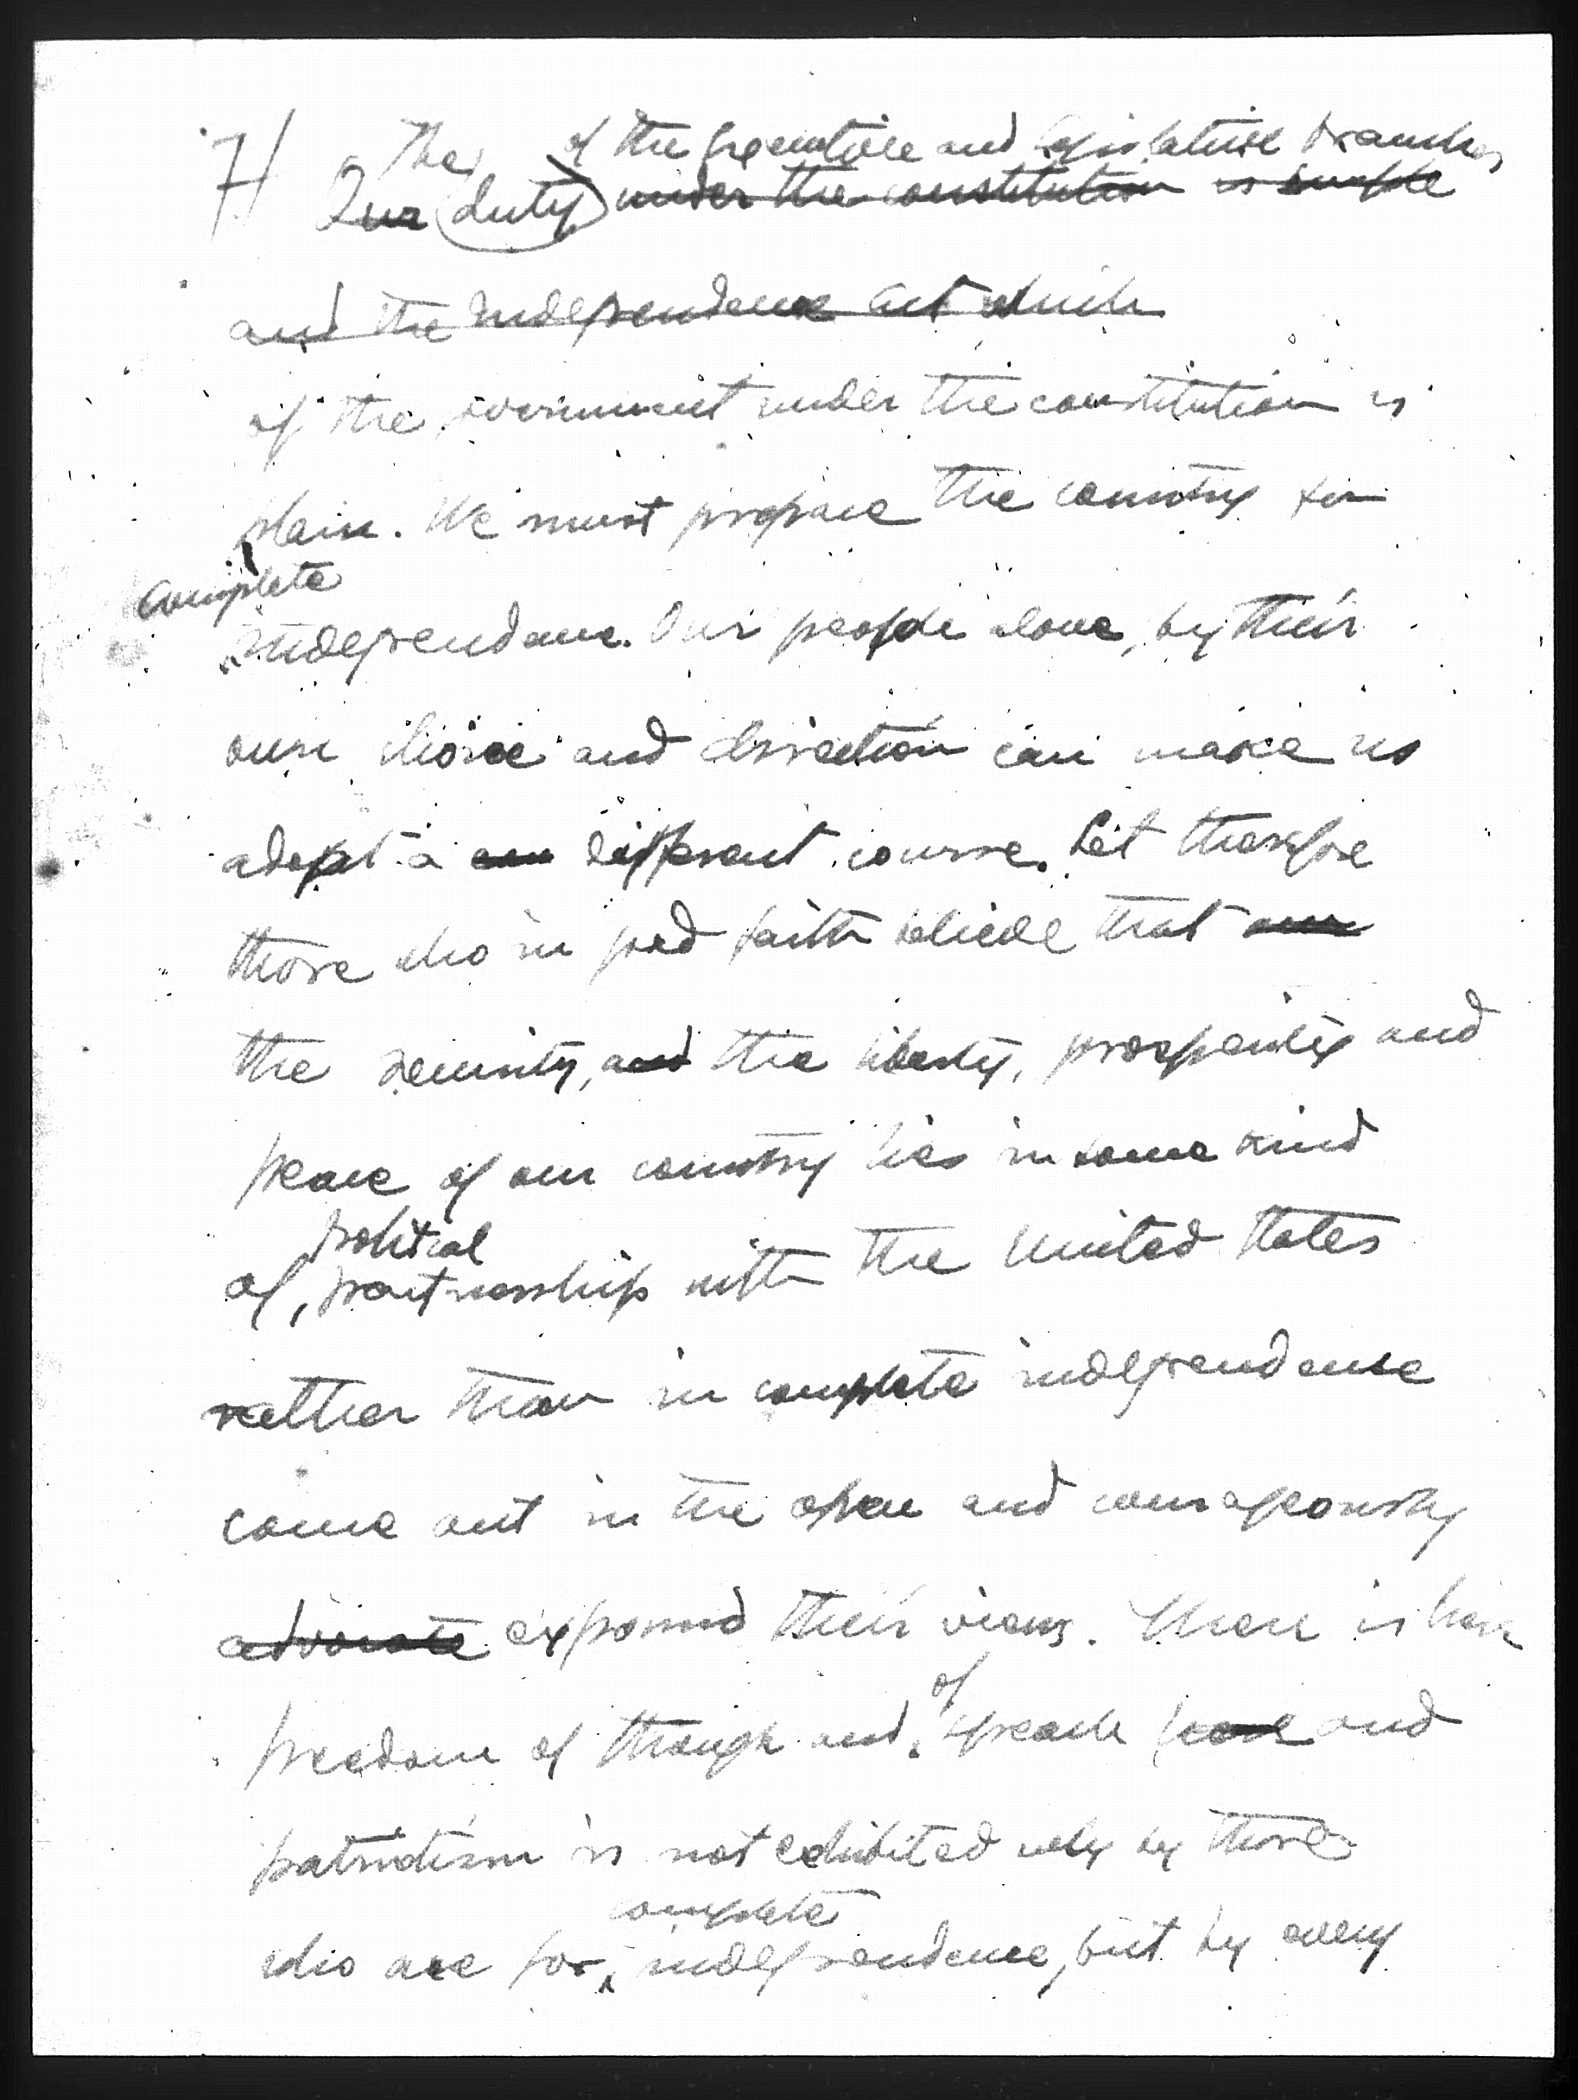 7/ The of the Executive and legislative branches
Our duty under the constitution is simple
and the Independence Act which
of the government under the constitution is
plain. We must prepare the country for
complete
independence. Our people alone, by their
own choice and direction can make us
adopt a different course. Let therefore
those who in good faith believe that our
the security, and the liberty, prosperity and
peace of our country lies in some kind
political
of, partnership with the United States
rather than in complete independence
come out in the open and courageously
advocate expound their views. There is here
of
freedom of though and speech here and
patriotism is not exhibited only by those
complete
who are for independence, but by every